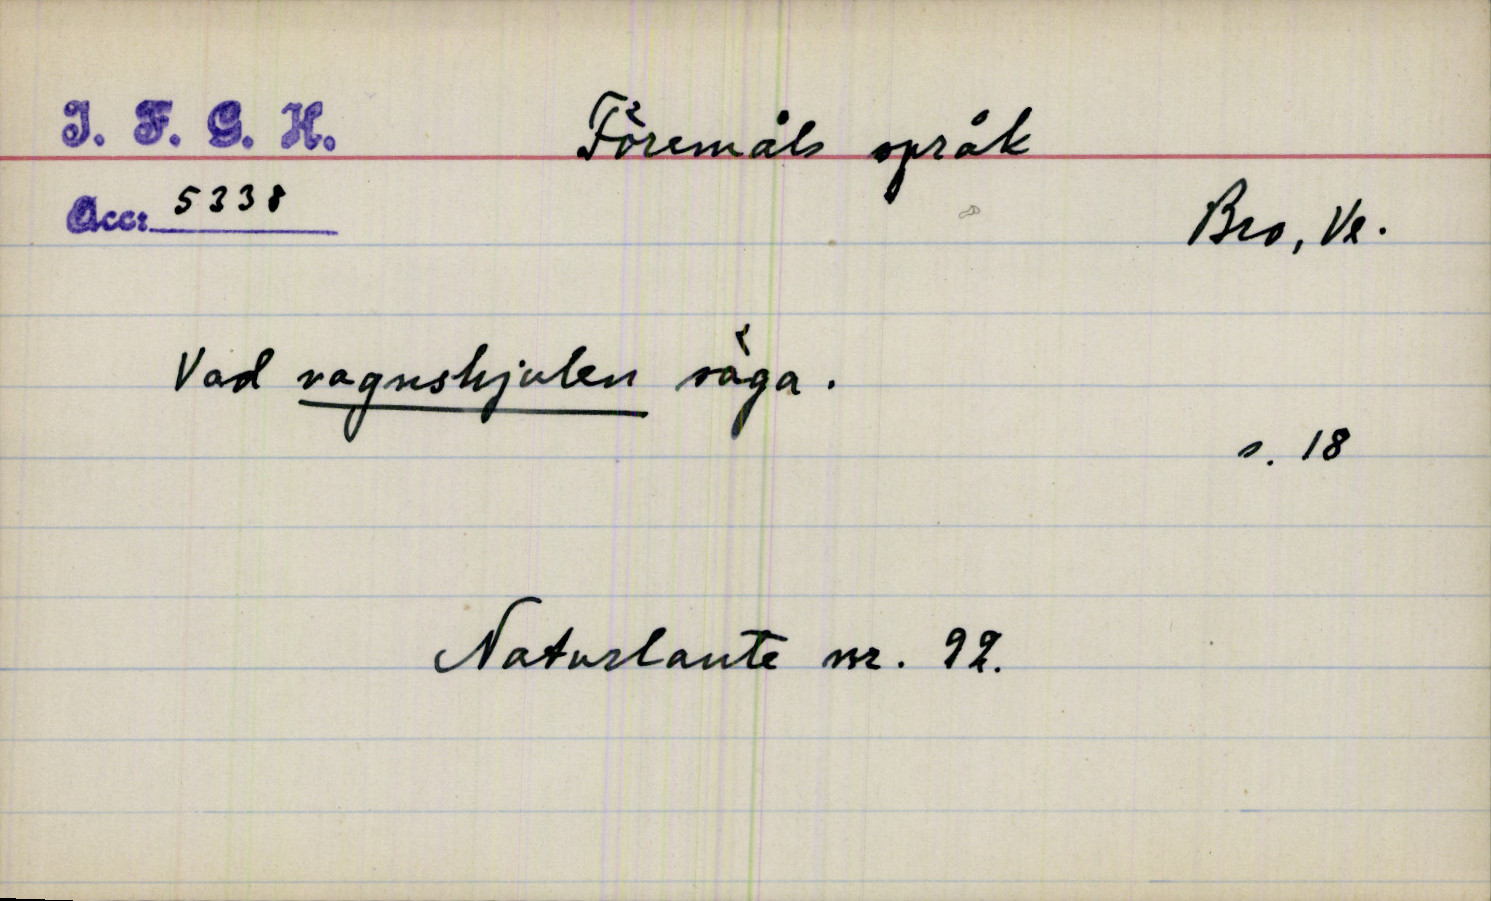 I. F. G. H.
Föremåls språk
Accr 5338
Bro, Ve.
Vad vagnshjulen säga.
s. 18
Naturlaute nr. 92.